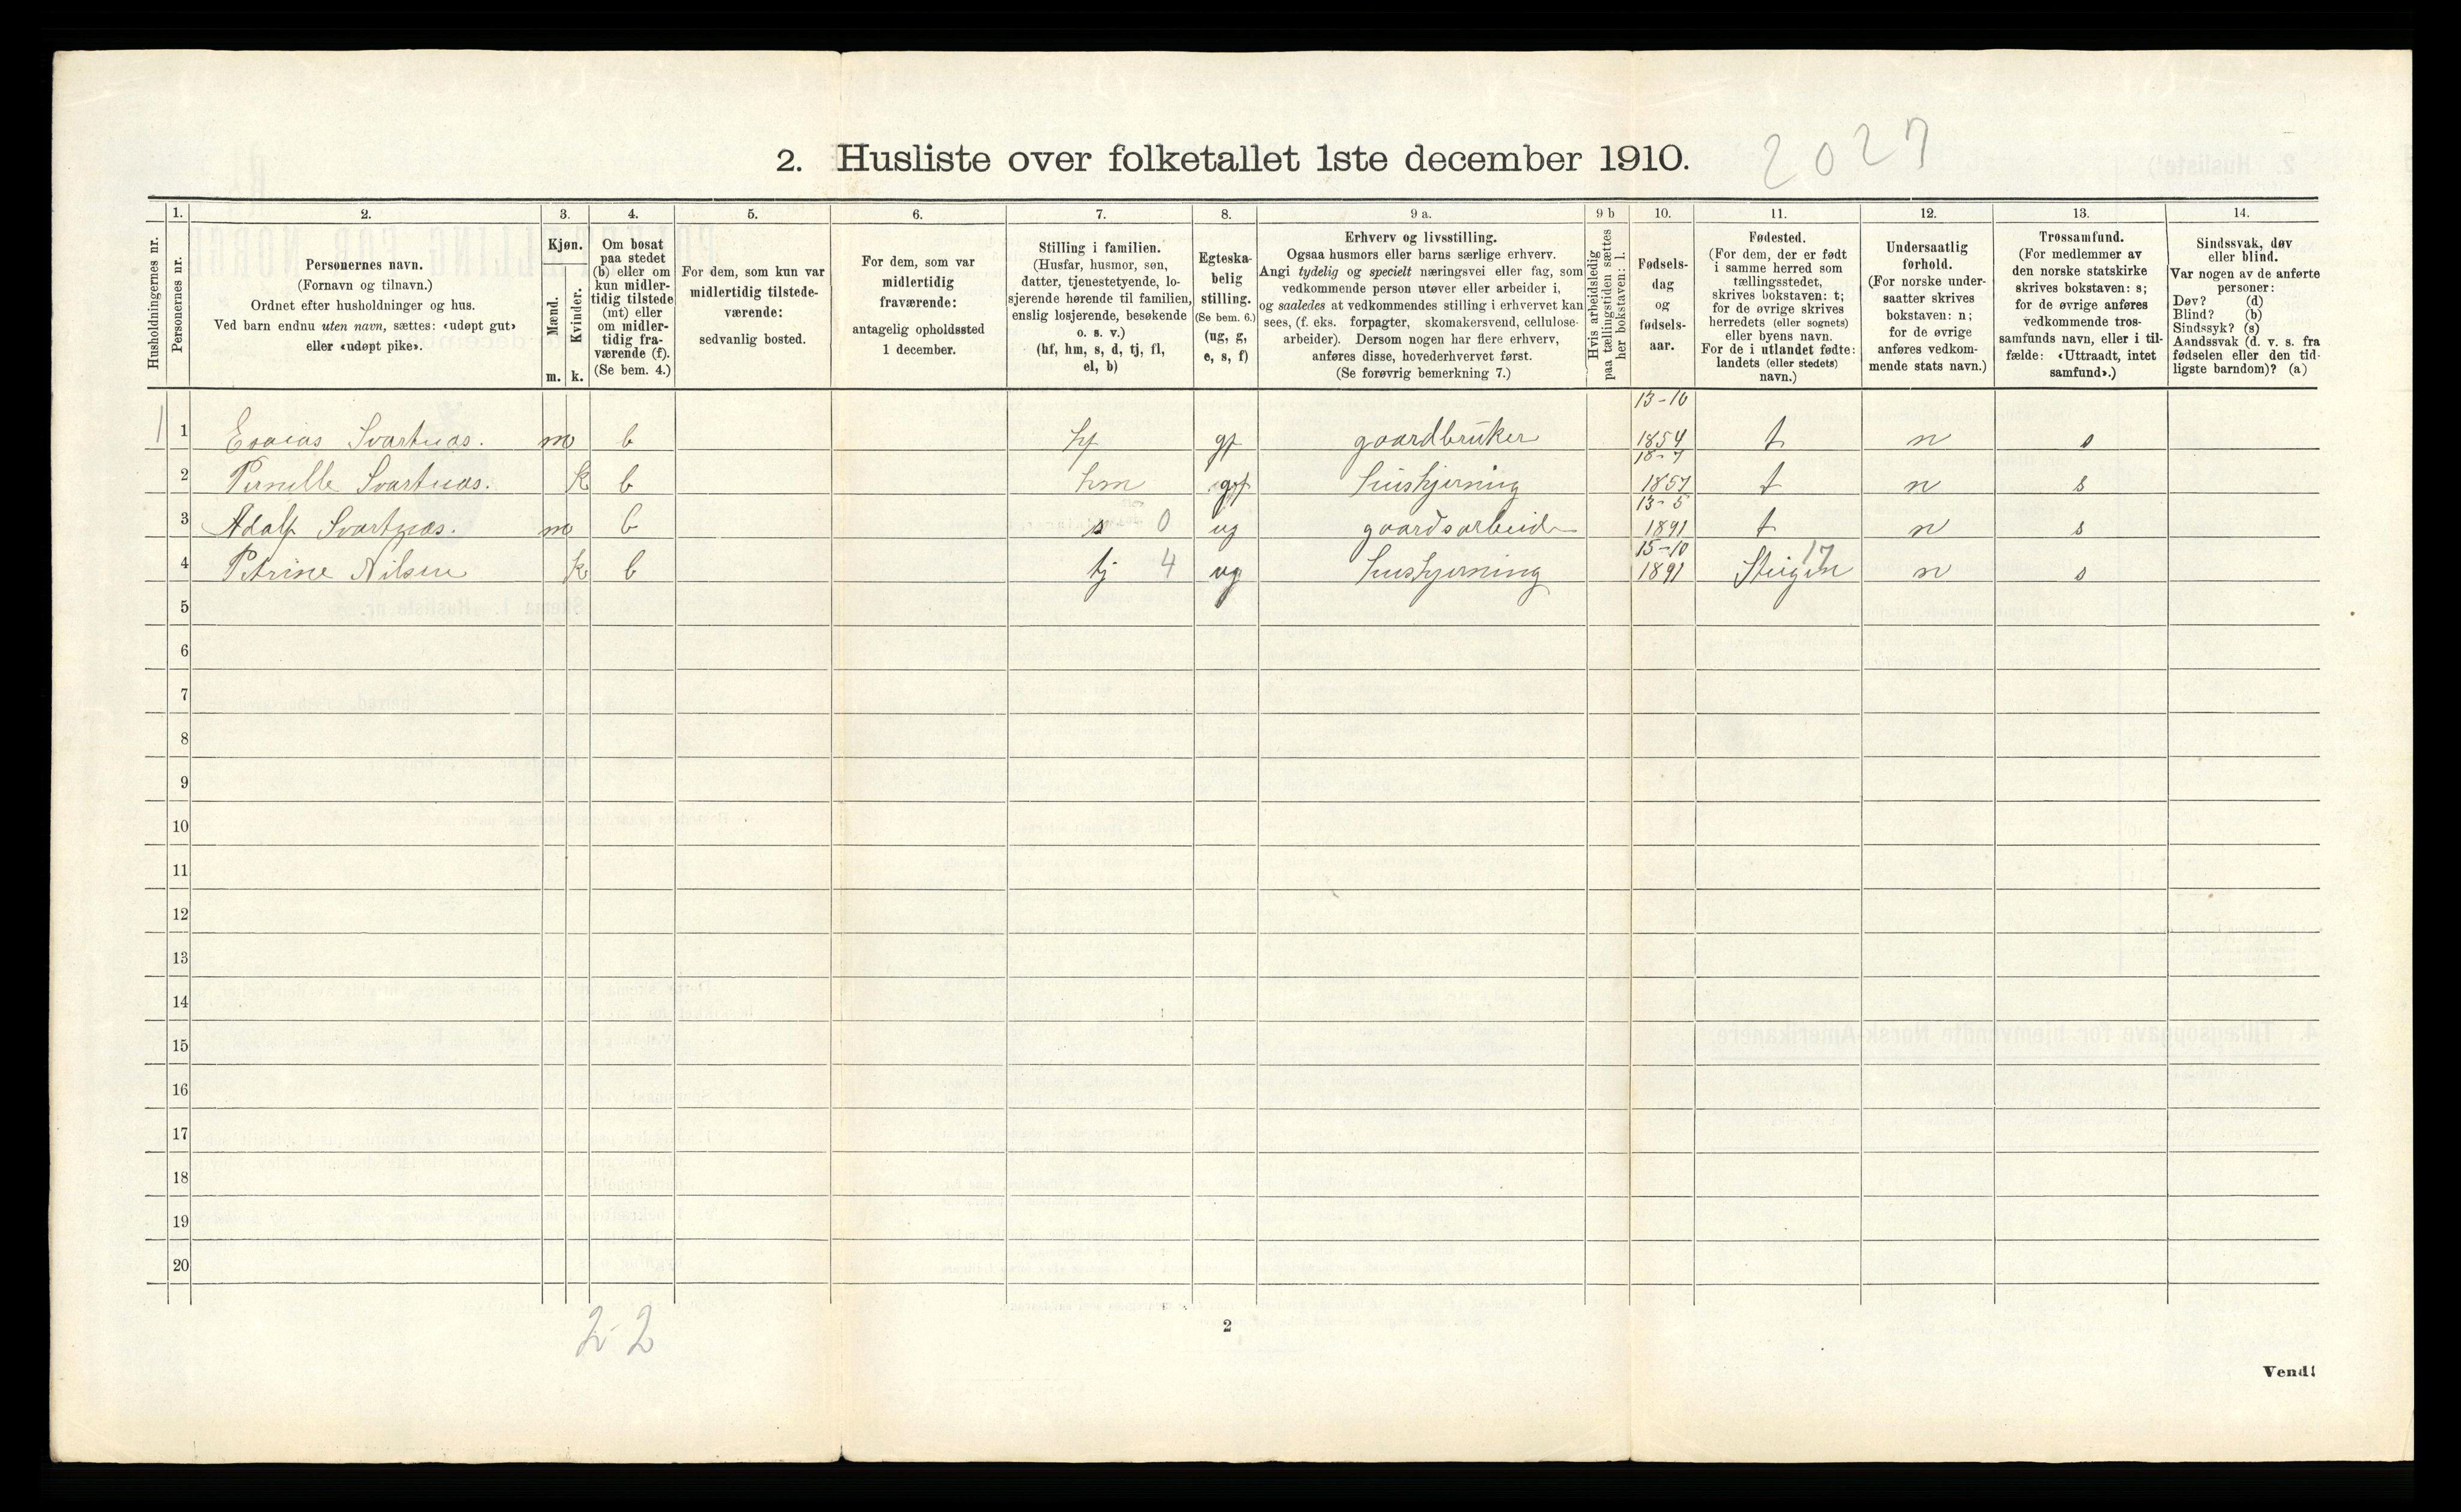 2. Husliste over folketallet 1ste december 1910. 2027
1. 2. 3. 4. 5. 6. 7. 8. 9 a. 9 b 10. 11. 12. 13. 14.
Husholdningernes nr.
Personernes nr.
Personernes navn.
(Fornavn og tilnavn.)
Ordnet efter husholdninger og hus.
Ved barn endnu uten navn, sættes: «udøpt gut»
eller «udøpt pike».
Kjøn.
Mænd.
Kvinder.
m. k.
Om bosat
paa stedet
(b) eller om
kun midler-
tidig tilstede
(mt) eller
om midler-
tidig fra-
værende (f).
(Se bem. 4.)
For dem, som kun var
midlertidig tilstede-
værende:
sedvanlig bosted.
For dem, som var
midlertidig
fraværende:
antagelig opholdssted
1 december.
Stilling i familien.
(Husfar, husmor, søn,
datter, tjenestetyende, lo-
sjerende hørende til familien,
enslig losjerende, besøkende
o. s. v.)
(hf, hm, s, d, tj, fl,
el, b)
Egteska-
belig
stilling.
(Se bem. 6.)
(ug, g,
e, s, f)
Erhverv og livsstilling.
Ogsaa husmors eller barns særlige erhverv.
Angi tydelig og specielt næringsvei eller fag, som
vedkommende person utøver eller arbeider i,
og saaledes at vedkommendes stilling i erhvervet kan
sees, (f. eks. forpagter, skomakersvend, cellulose-
arbeider). Dersom nogen har flere erhverv,
anføres disse, hovederhvervet først.
(Se forøvrig bemerkning 7.)
Hvis arbeidsledig
paa tællingstiden sættes
her bokstaven: l.
Fødsels-
dag
og
fødsels-
aar.
Fødested.
(For dem, der er født
i samme herred som
tællingsstedet,
skrives bokstaven: t;
for de øvrige skrives
herredets (eller sognets)
eller byens navn.
For de i utlandet fødte:
landets (eller stedets)
navn.)
Undersaatlig
forhold.
(For norske under-
saatter skrives
bokstaven: n;
for de øvrige
anføres vedkom-
mende stats navn.)
Trossamfund.
(For medlemmer av
den norske statskirke
skrives bokstaven: s;
for de øvrige anføres
vedkommende tros-
samfunds navn, eller i til-
fælde: «Uttraadt, intet
samfund».)
Sindssvak, døv
eller blind.
Var nogen av de anførte
personer:
Døv? (d)
Blind? (b)
Sindssyk? (s)
Aandssvak (d. v. s. fra
fødselen eller den tid-
ligste barndom)? (a)
13-10
1 1 Esaias Svartnæs. m b hf g gaardbruker 1854 t n s
18-7
2 Pernille Svartnæs. k b hm g hushjerning 1857 t n s
13-5
3 Adolf Svartnæs. m b s 0 ug gaardsarbeid 1891 t n s
15-10 17
4 Petrine Nilsen k b tj 4 ug hushjerning 1891 Steigen n s
5
6
7
8
9
10
11
12
13
14
15
16
17
18
19
20
2-2
2
Vend!